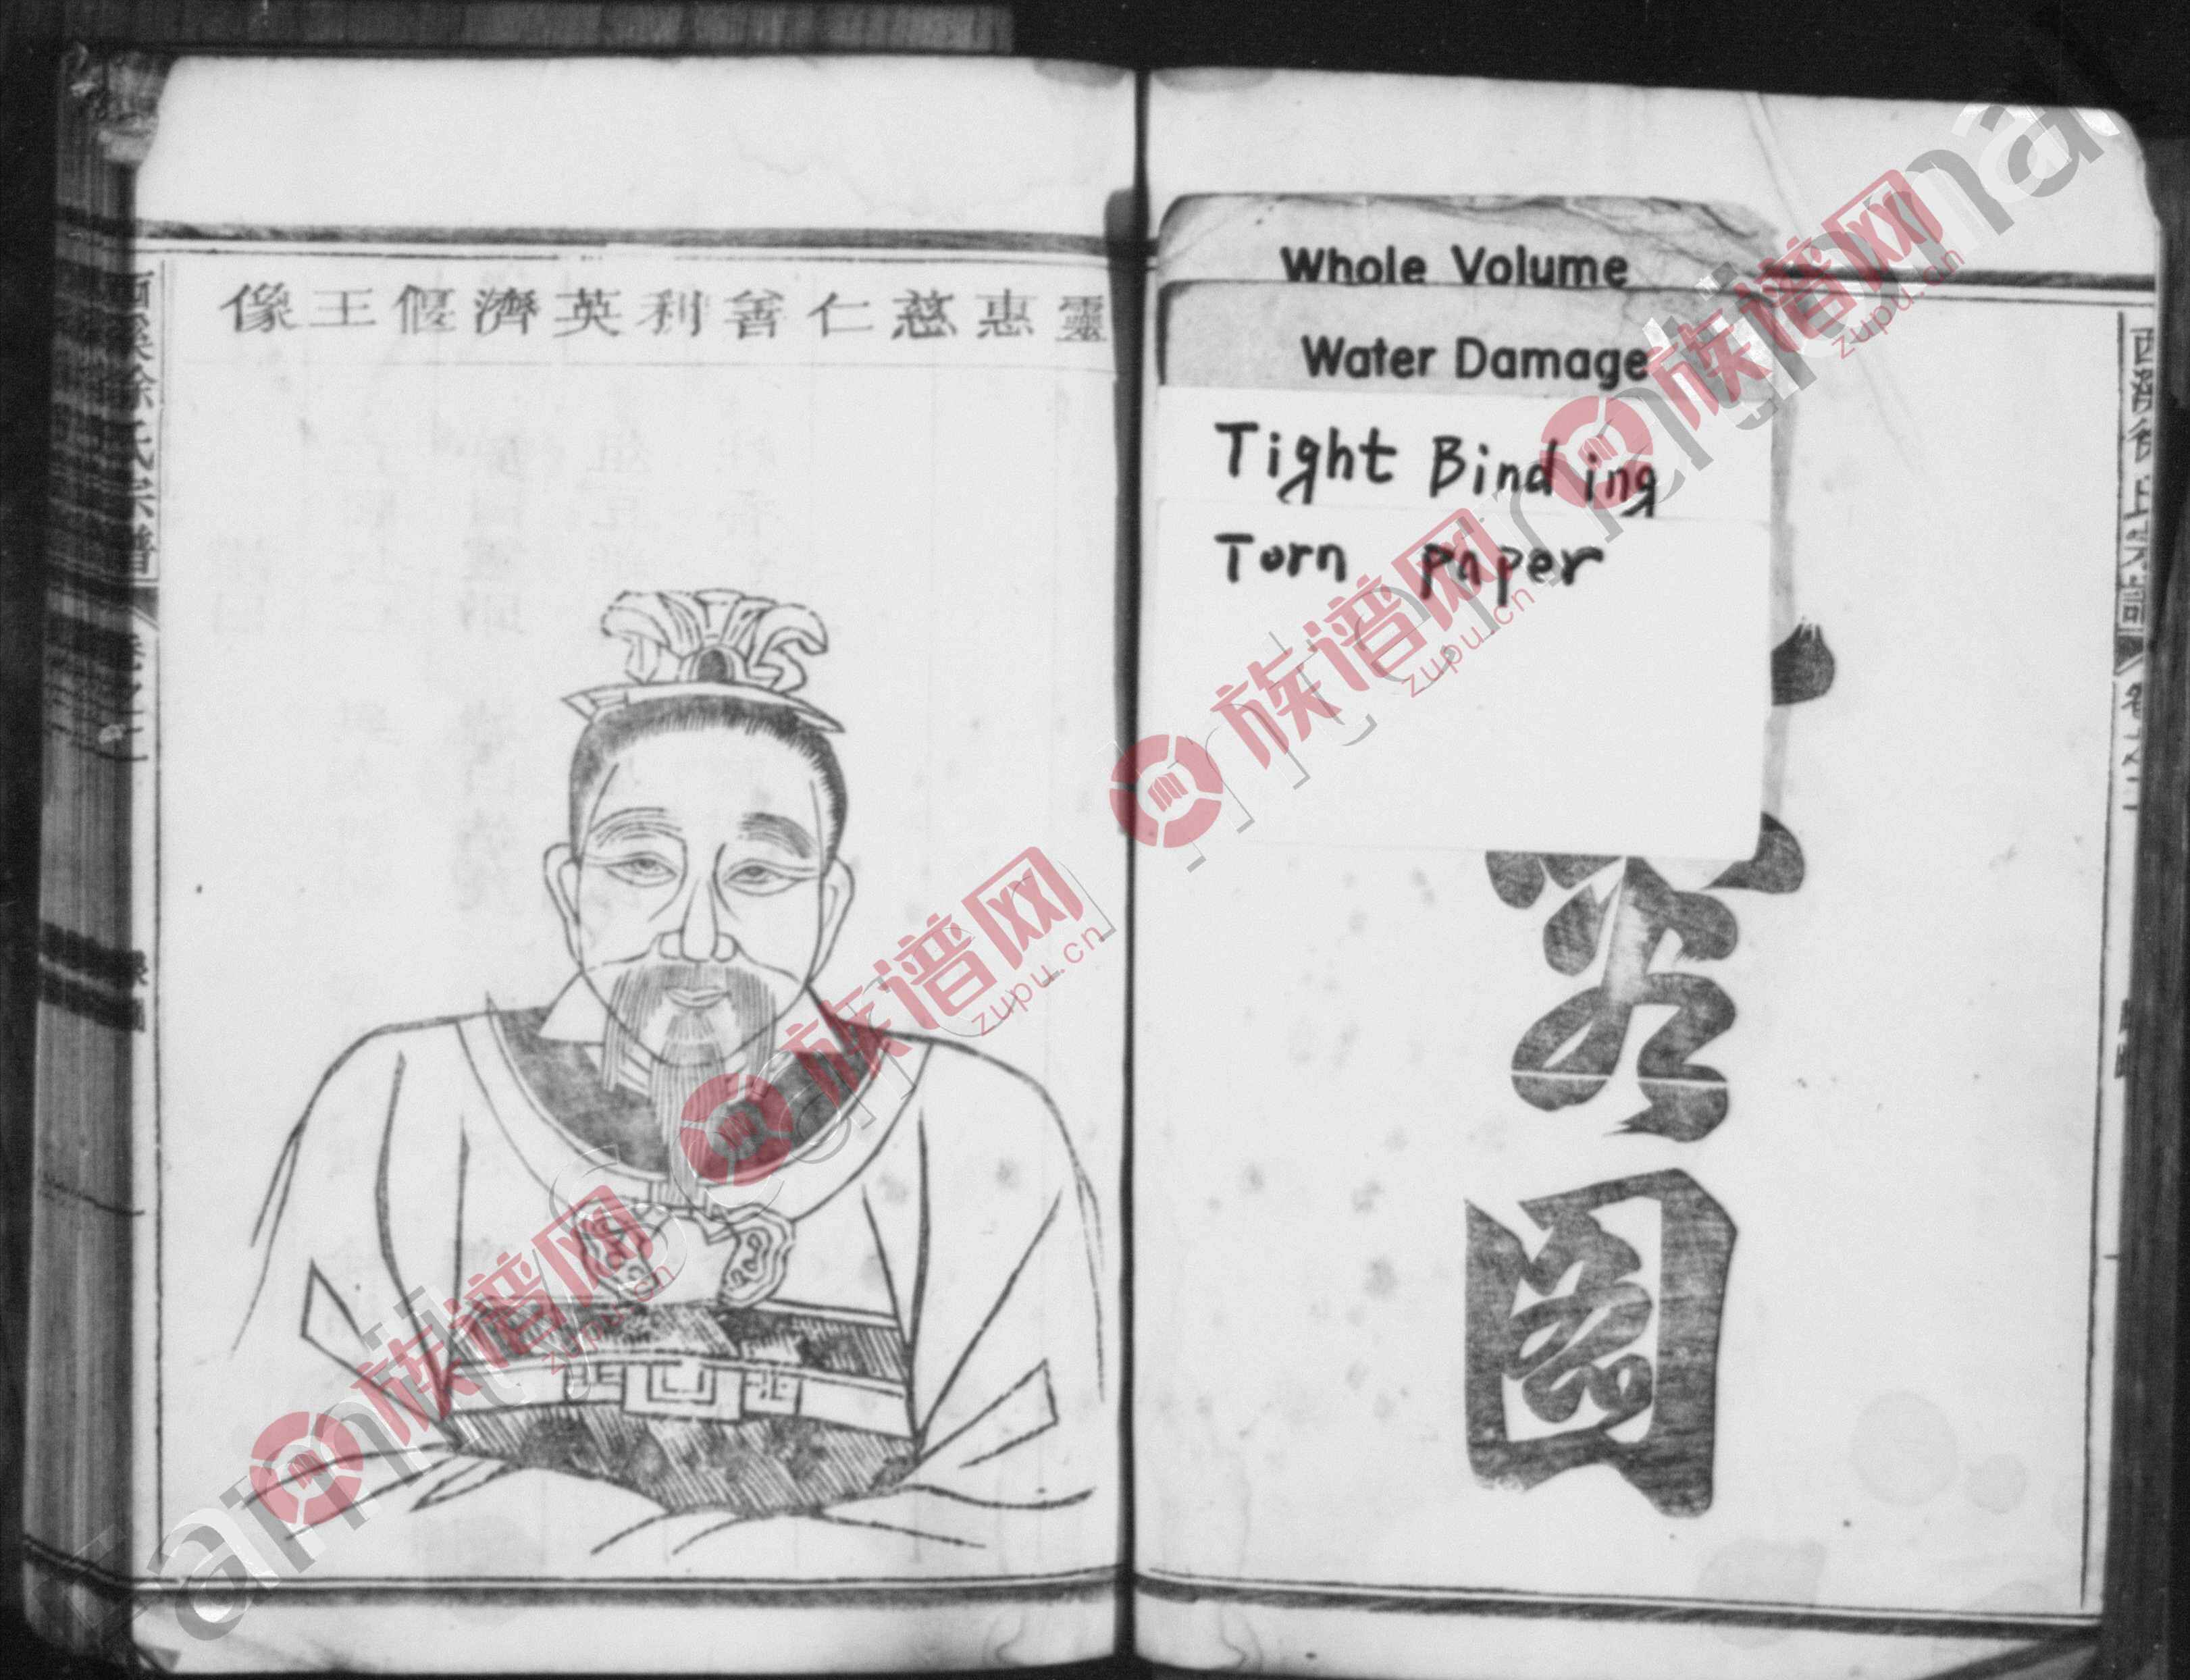 靈惠慈仁善利英濟偃王像
西溪徐氏宗譜
卷之二
Whole Volume
Water Damage
Tight Binding
Torn Paper
圖
西溪徐氏宗譜
卷之二
族谱网
zupu.cn
族谱网
zupu.cn
族谱网
zupu.cn
族谱网
zupu.cn
族谱网
zupu.cn